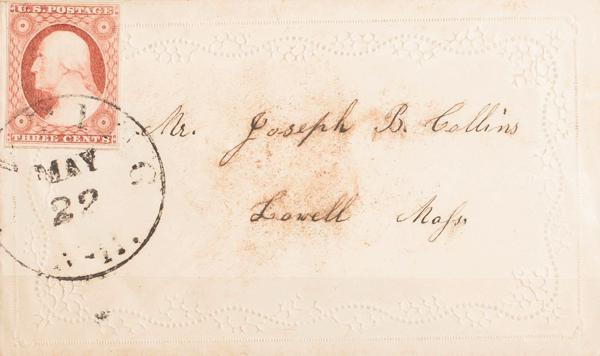 U.S. POSTAGE
THREE CENTS
MAY
22
Mr. Joseph B. Collins
Lowell Mass.